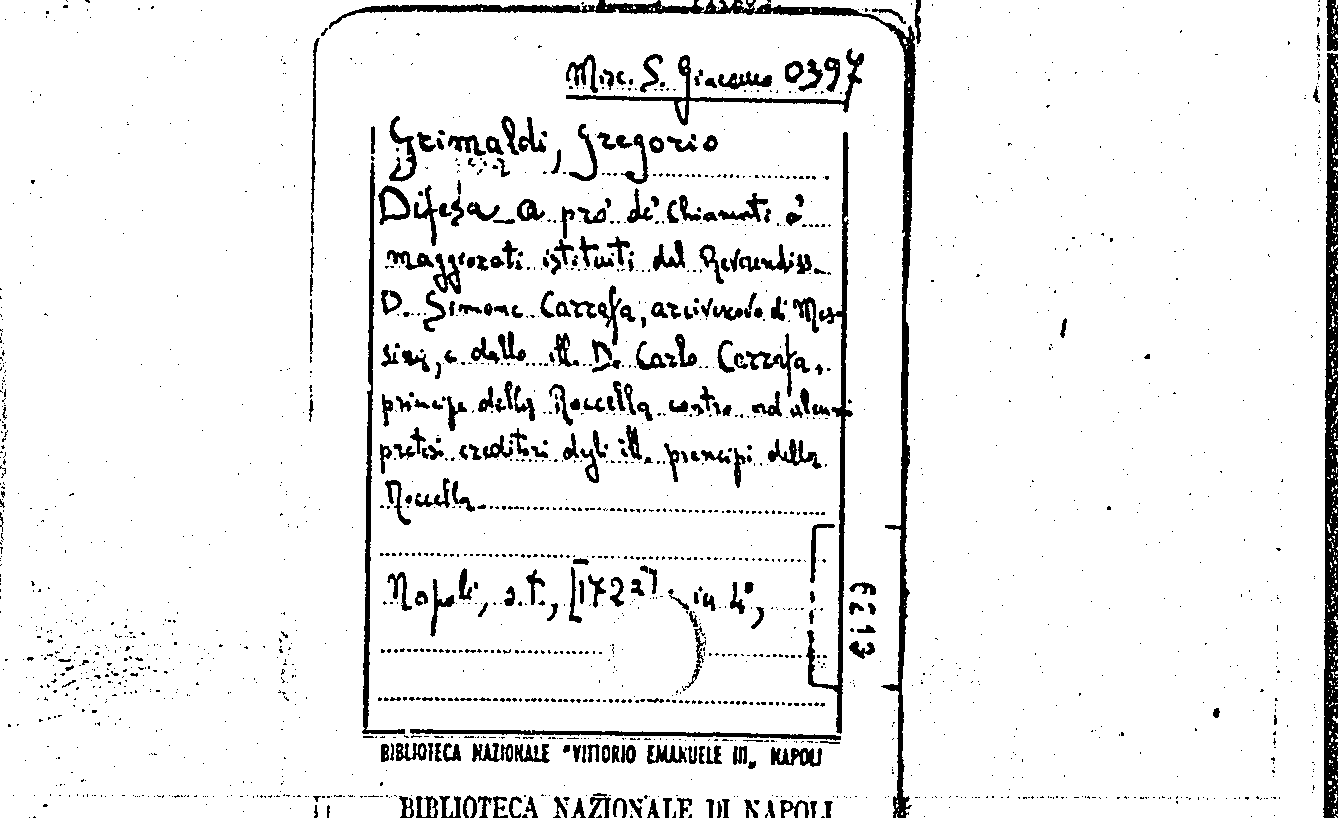 Misc. S. Giacomo 0397
Grimaldi, Gregorio
Difesa a prò de' Chiamati a'
maggiorati istituiti dal Reverendiss.
D. Simone Carrafa, arcivescovo di Mes-
sina, e dallo ill. D. Carlo Carrafa,
principe della Roccella contro ad alcuni
pretesi creditori degli ill. principi della
Roccella.
Napoli, s.t., [1722?], in 4°,
BIBLIOTECA NAZIONALE "VITTORIO EMANUELE III„ NAPOLI
BIBLIOTECA NAZIONALE DI NAPOLI